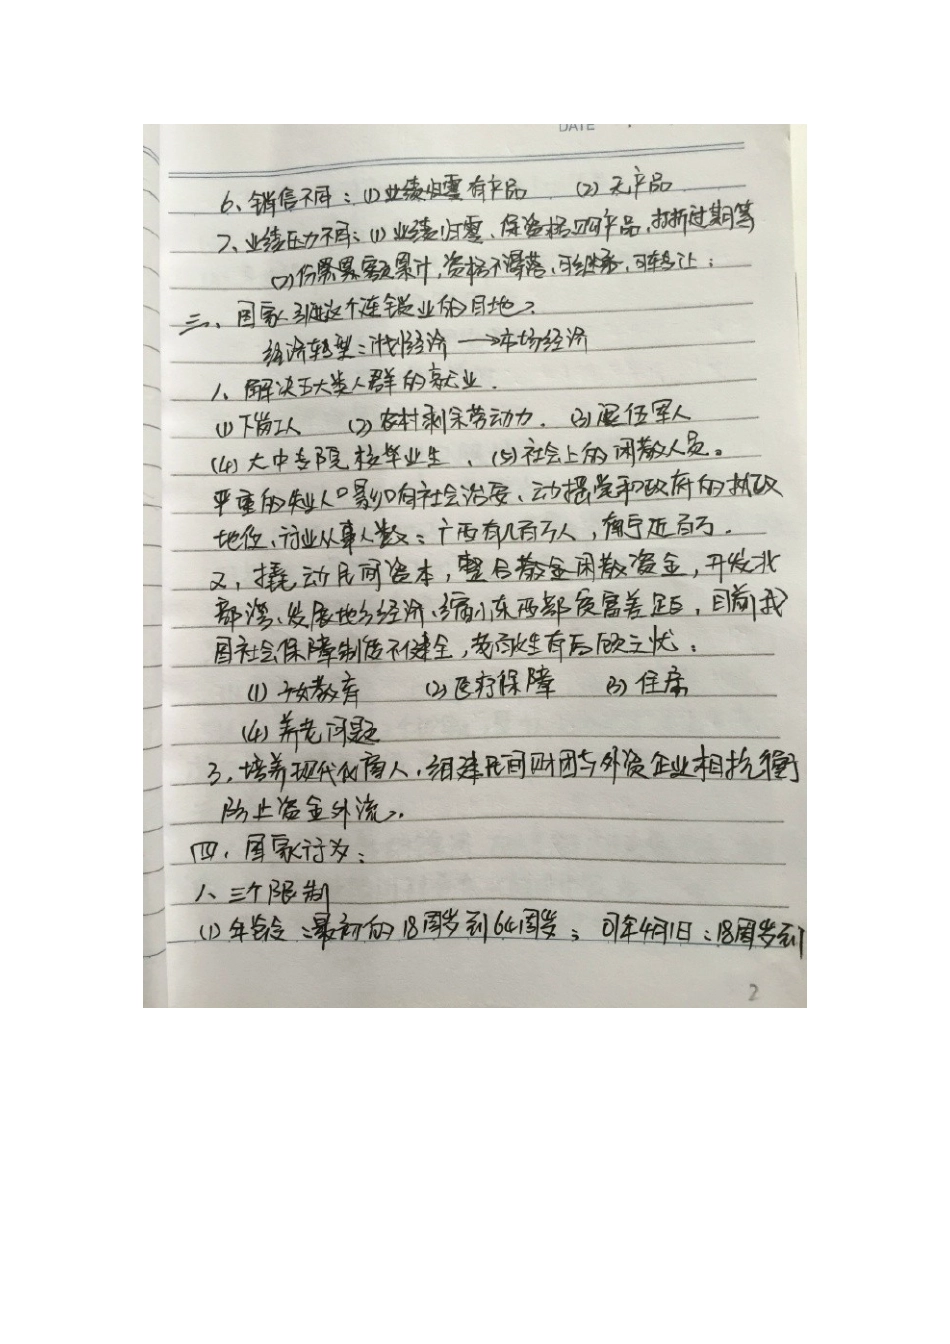 DATE
6、销售不同：(1)业绩归零有产品 (2)无产品
7、业绩压力不同：(1)业绩归零、保资格购产品,打折过期等
(2)份额累计,资格不滑落,可继承,可转让；
三、国家引进这个连锁业的目地？
经济转型：计划经济→市场经济
1、解决五大类人群的就业.
(1)下岗工人 (2)农村剩余劳动力. (3)退伍军人
(4)大中专院校毕业生、(5)社会上的闲散人员。
严重的失业人口影响社会治安、动摇党和政府的执政
地位、行业从事人数：广西有几百万人,南宁近百万.
2,撬动民间资本,整合散金闲散资金,开发北
部湾、发展地方经济、缩小东西部贫富差距,目前我
国社会保障制度不健全,老百姓有后顾之忧：
(1)子女教育 (2)医疗保障 (3)住房
(4)养老问题
3,培养现代化商人,组建民间财团与外资企业相抗衡
防止资金外流.
四、国家行为：
1、三个限制
(1)年龄：最初的18周岁到64周岁； 年4月1日：18周岁到
2